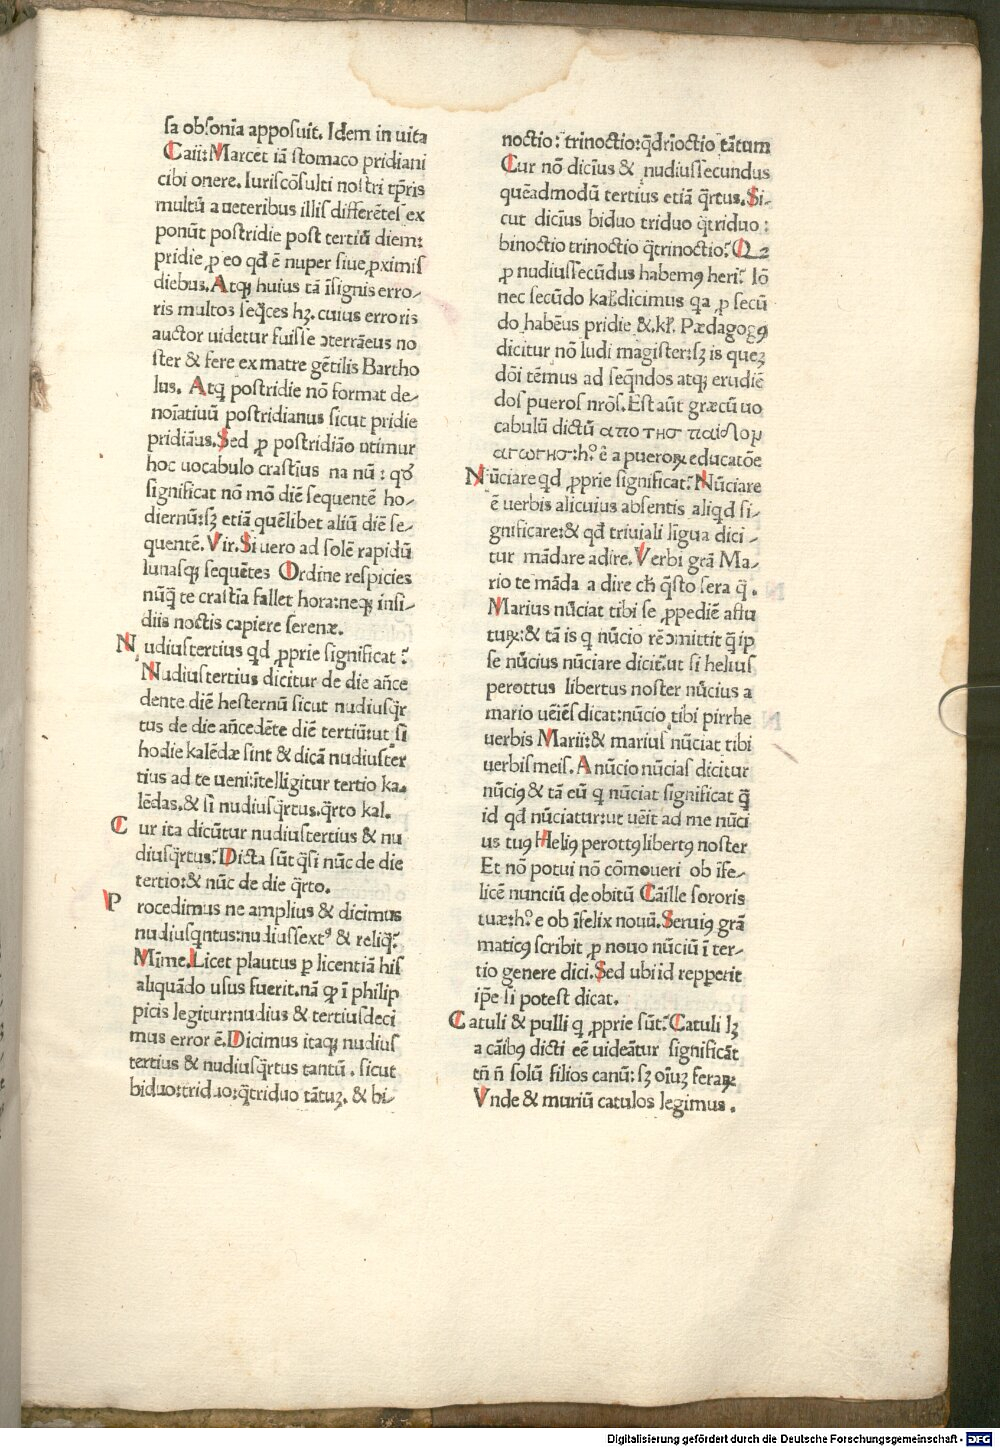 sa obsonia apposuit. Idem in uita
Caii: Marcet iā stomaco pridiani
cibi onere. Iuriscōsulti nostri tp̄ris
multū a ueteribus illis differētes ex
ponūt postridie post tertiū diem:
pridie ꝓ eo qđ ē nuper siue ꝓximis
diebus. Atqꝫ huius tā īsignis erro-
ris multos seq̄ces hꝫ. cuius erroris
auctor uidetur fuisse ↄterrāeus no
ster & fere ex matre gētilis Bartho
lus. Atqꝫ postridie nō format de-
noīatiuū postridianus sicut pridie
pridiāus. Sed ꝓ postridiāo utimur
hoc uocabulo crastīus na nū : qđ
significat nō mō diē sequentē ho-
diernū: sꝫ etiā quēlibet aliū diē se-
quentē. Vir. Si uero ad solē rapidū
lunasqꝫ sequētes Ordine respicies
nūq̄ te crastīa fallet hora: neqꝫ insi-
diis noctis capiere serenæ.
Nudiustertius qđ ꝓprie significat?
Nudiustertius dicitur de die añce
dente diē hesternū sicut nudiusq̄r
tus de die añcedēte diē tertiū: ut si
hodie kalēdæ sint & dicā nudiuster
tius ad te ueni: ītelligitur tertio ka-
lēdas. & si nudiusq̄rtus. q̄rto kal.
Cur ita dicūtur nudiustertius & nu
diusq̄rtus? Dicta sūt q̄si nūc de die
tertio: & nūc de die q̄rto.
Procedimus ne amplius & dicimus
nudiusqntus: nudiussextꝰ & reliq̄?
Mīme. Licet plautus ꝑ licentiā his
aliquādo usus fuerit. nā qꝙ ī philip
picis legitur: nudius & tertiusdeci
mus error ē. Dicimus itaqꝫ nudius
tertius & nudiusq̄rtus tantū. sicut
biduo: triduo: q̄triduo tātuꝫ. & bi-
noctio: trinoctio: q̄drīoctio tātum
Cur nō dicīus & nudiussecundus
quēadmodū tertius etiā q̄rtus. Si-
cut dicīus biduo triduo q̄triduo :
binoctio trinoctio q̄trinoctio? Qꝛ
ꝓ nudiussecūdus habemꝰ heri? Iō
nec secūdo kal̄. dicimus qa ꝓ secū
do habēus pridie &. kl̄. Pædagogꝰ
dicitur nō ludi magister: sꝫ is queꝫ
dōi tēmus ad seq̄ndos atqꝫ erudiē
dos pueros nr̄os. Est aūt græcū uo
cabulū dictū απο τησ παίδομ
αγωγησ: h.º ē a pueroꝝ educatōe
Nūciare qđ ꝓprie significat? Nūciare
ē uerbis alicuius absentis aliqđ si-
gnificare: & qđ triuiali līgua dici -
tur mādare adire. Verbi grā Ma-
rio te māda a dire ch̄ q̄sto sera q̄.
Marius nūciat tibi se ꝓpediē aftu
tuꝝ: & tā is q nūcio rēↄmittit q̄ ip
se nūcius nūciare dicit̄. ut si helius
perottus libertus noster nūcius a
mario uēiēs dicat: nūcio tibi pirrhe
uerbis Marii: & marius nūciat tibi
uerbis meis. A nūcio nūcias dicitur
nūciꝰ & tā eū q nūciat significat q̄
id qđ nūciatur: ut ueīt ad me nūci
us tuꝰ Heliꝰ perottꝰ libertꝰ noster
Et nō potui nō cōmoueri ob īfe-
licē nunciū de obitū Cāille sororis
tuæ: h.º e ob īfelix nouū. Seruiꝰ grā
maticꝰ scribit ꝓ nouo nūciū ī ter-
tio genere dici. Sed ubi id repꝑerit
ip̄e si potest dicat.
Catuli & pulli q ꝓprie sūt? Catuli lꝫ
a cāibꝰ dicti eē uideātur significāt
tn̄ n̄ solū filios canū: sꝫ oīuꝫ feraꝝ
Vnde & muriū catulos legimus.
Digitalisierung gefördert durch die Deutsche Forschungsgemeinschaft - DFG